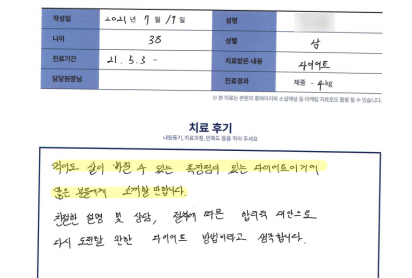 작성일 2021년 7월 19일 성명
나이 38 성별 남
진료기간 21.5.3 ~ 치료받은 내용 다이어트
담당원장님 진료경과 체중 -4kg
※ 본 자료는 본원의 홈페이지와 소셜채널 등 마케팅 자료로도 활용 될 수 있습니다.
치료 후기
내원동기, 치료과정, 만족도 등을 적어 주세요
먹어도 살이 빠질 수 있는 특장점이 있는 다이어트이기에
많은 분들에게 소개할 만합니다.
친절한 설명 및 상담, 체질에 따른 합리적 대안으로
다시 도전할 만한 다이어트 방법이라고 생각합니다.